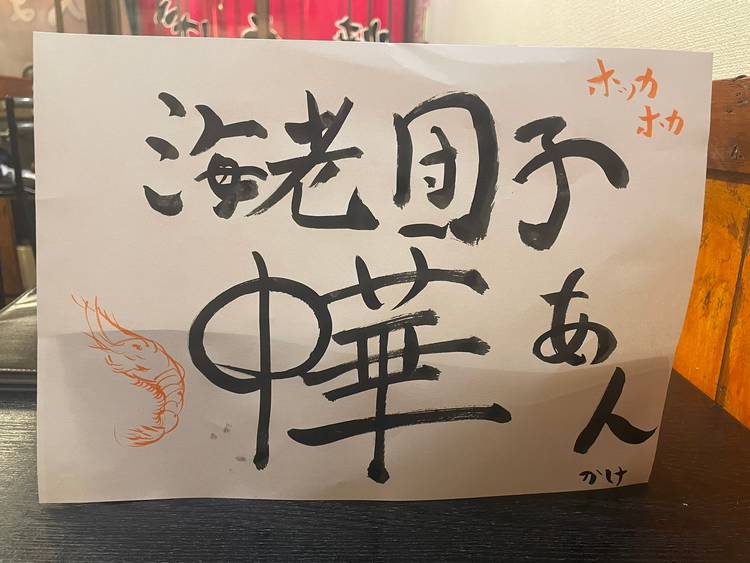 ホッカ
ホカ
海老団子
中華
あん
かけ